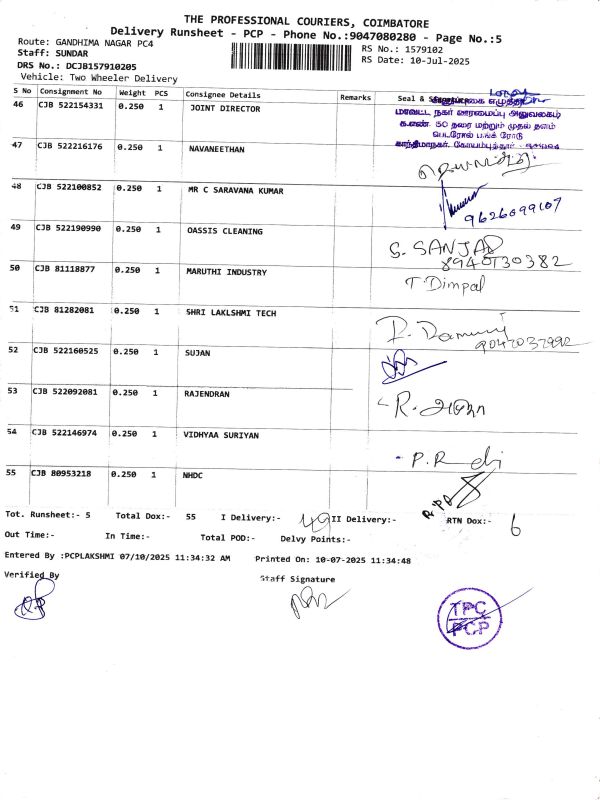 THE PROFESSIONAL COURIERS, COIMBATORE
Delivery Runsheet - PCP - Phone No.:9047080280 - Page No.:5
Route: GANDHIMA NAGAR PC4
RS No.: 1579102
Staff: SUNDAR
RS Date: 10-Jul-2025
DRS No.: DCJB157910205
Vehicle: Two Wheeler Delivery
S No Consignment No Weight PCS Consignee Details Remarks Seal &
46 CJB 522154331 0.250 1 JOINT DIRECTOR
மாவட்ட நகர ஊரமைப்பு அலுவலகம்
க.எண். 50 தரை மற்றும் முதல் தளம்
47 CJB 522216176 0.250 1 NAVANEETHAN
48 CJB 522100852 0.250 1 MR C SARAVANA KUMAR
49 CJB 522190990 0.250 1 OASSIS CLEANING
S. SANJAY
8940730382
50 CJB 81118877 0.250 1 MARUTHI INDUSTRY
T. Dimpal
51 CJB 81282081 0.250 1 SHRI LAKLSHMI TECH
52 CJB 522160525 0.250 1 SUJAN
53 CJB 522092081 0.250 1 RAJENDRAN
54 CJB 522146974 0.250 1 VIDHYAA SURIYAN
55 CJB 80953218 0.250 1 NHDC
Tot. Runsheet:- 5 Total Dox:- 55 I Delivery:- 49 II Delivery:- RTN Dox:- 6
Out Time:- In Time:- Total POD:- Delvy Points:-
Entered By :PCPLAKSHMI 07/10/2025 11:34:32 AM Printed On: 10-07-2025 11:34:48
Verified By
Staff Signature
TPC
PCP